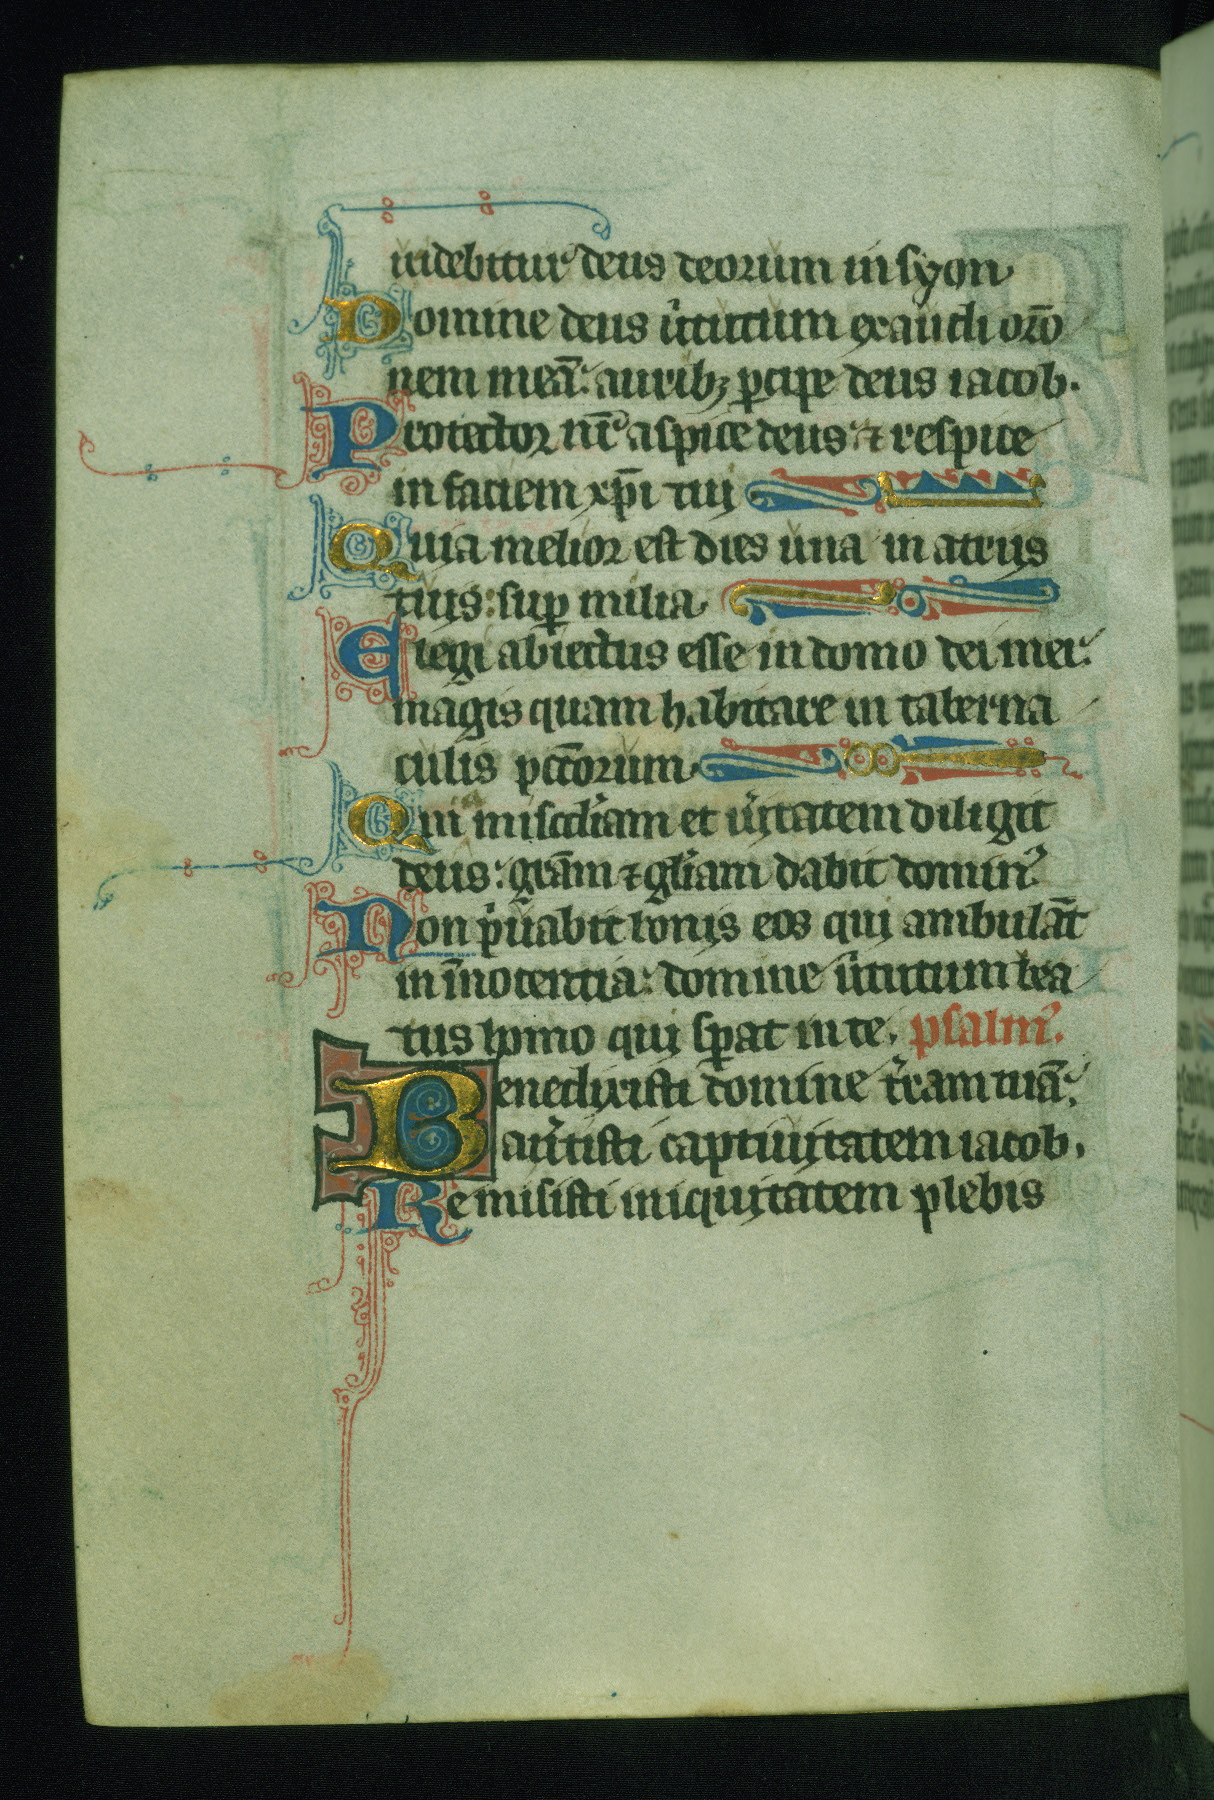 uidebitur deus deorum in syon
Domine deus u̾tutum exaudi orō
nem meā: auribꝫ ꝑcipe deus iacob.
Protector nr̄ aspice deus: ⁊ respice
in faciem xp̄i tui
Quia melior est dies una in atriis
tuis: suꝑ milia
Elegi abiectus esse in domo dei mei:
magis quam habitare in taberna
culis pctōrum
Qui misc̄diam et u̾itatem diligit
deus: gr̄am ⁊ gl̄iam dabit dominꝰ
Non p̾uabit bonis eos qui ambulāt
in īnocentia: domine u̾tutum bea
tus homo qui sꝑat in te. psalmꝰ.
Benedixisti domine t̾ram tuā:
au̾tisti captiuitatem iacob.
Remisisti iniquitatem plebis